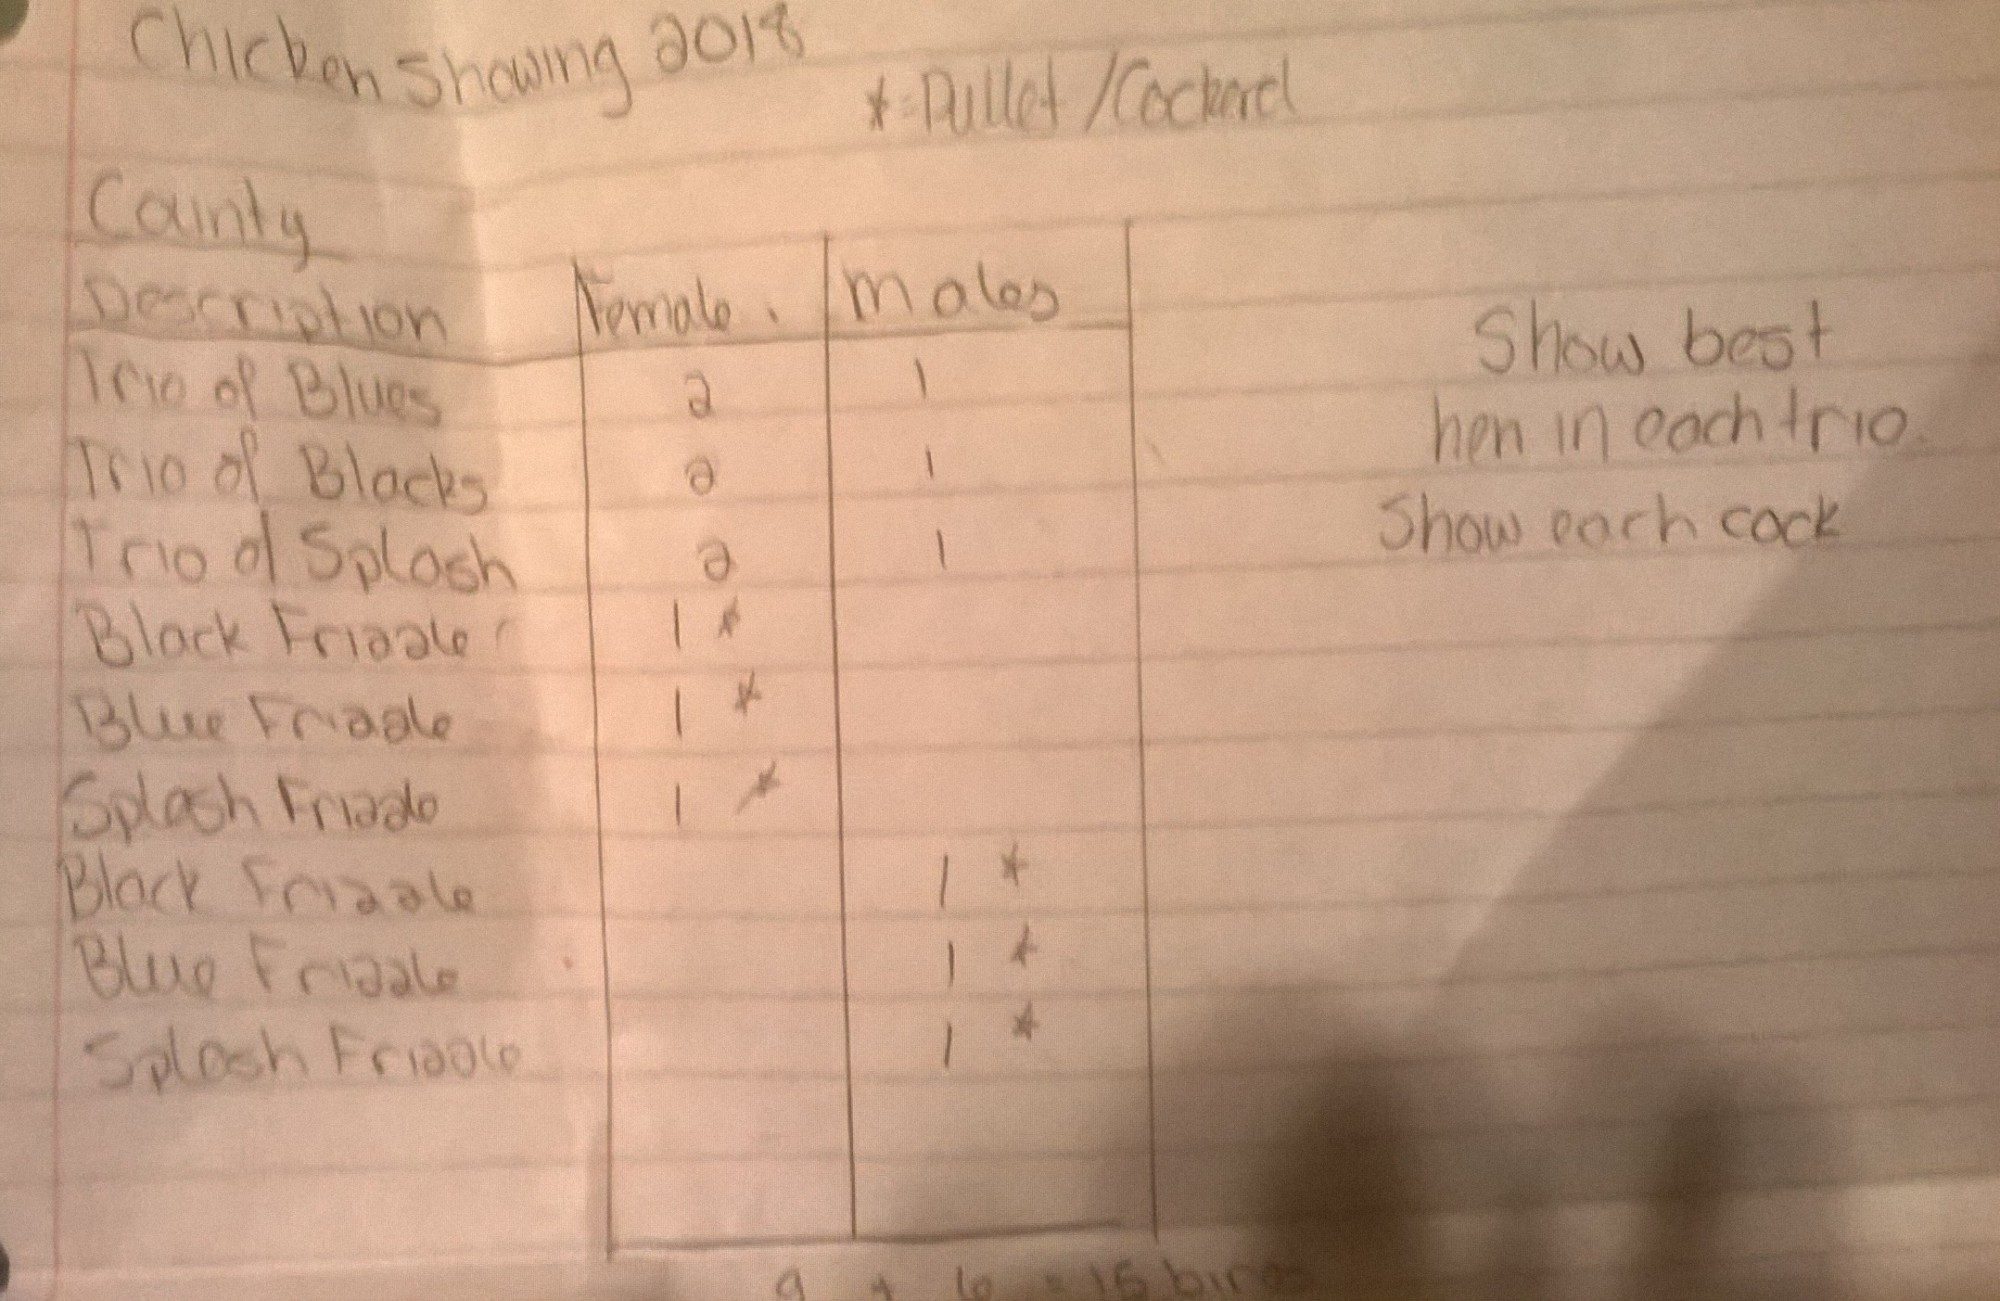 Chicken Showing 2018
*=Pullet/Cockerel
County
Description Female. Males
Trio of Blues 2 1
Trio of Blacks 2 1
Trio of Splash 2 1
Black Frizzle 1 *
Blue Frizzle 1 *
Splash Frizzle 1 *
Black Frizzle 1 *
Blue Frizzle 1 *
Splash Frizzle 1 *
9 + 6 = 15 birds
Show best
hen in each trio.
Show each cock